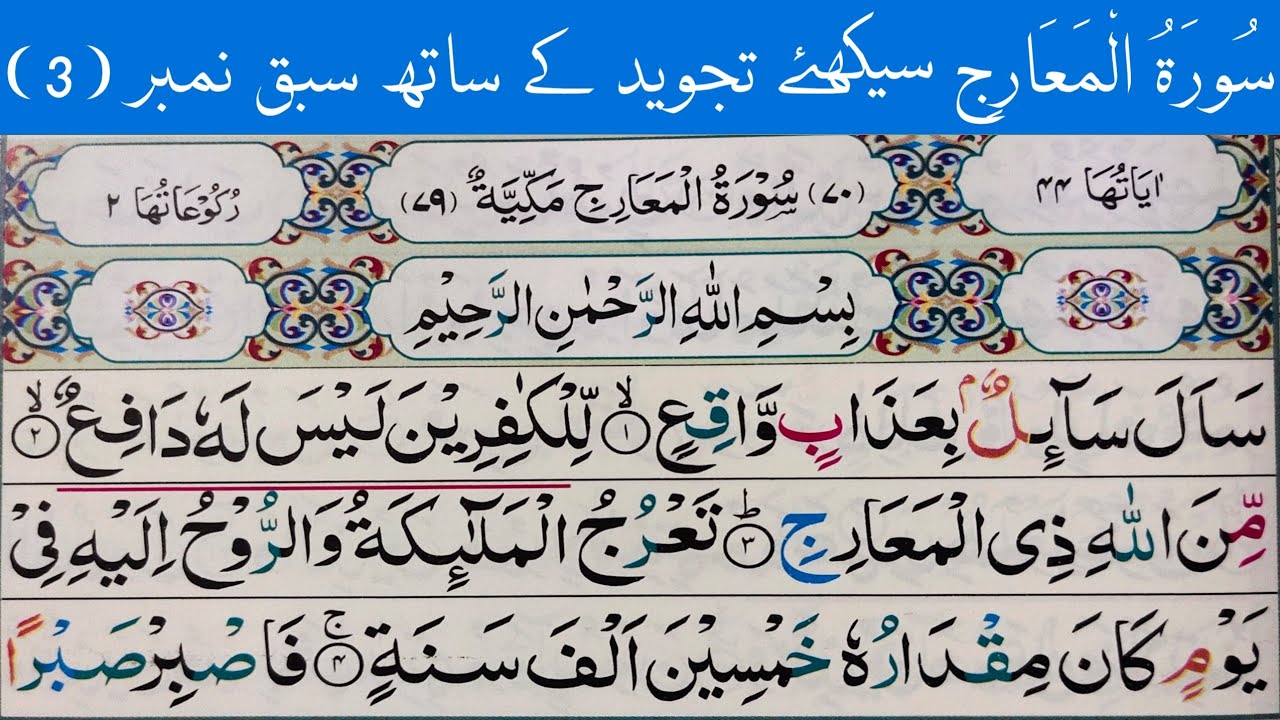 سُورَةُ الْمَعَارِجِ سیکھئے تجوید کے ساتھ سبق نمبر (3)
اٰيَاتُهَا ۴۴ (۷۰) سُوْرَةُ الْمَعَارِجِ مَكِّيَّةٌ (۷۹) رُكُوْعَاتُهَا ۲
بِسْمِ اللّٰهِ الرَّحْمٰنِ الرَّحِيْمِ
سَاَلَ سَآئِلٌۢ بِعَذَابٍ وَّاقِعٍ ۙ﴿۱﴾ لِّلْكٰفِرِيْنَ لَيْسَ لَهٗ دَافِعٌ ۙ﴿۲﴾
مِّنَ اللّٰهِ ذِى الْمَعَارِجِ ؕ﴿۳﴾ تَعْرُجُ الْمَلٰٓئِكَةُ وَالرُّوْحُ اِلَيْهِ فِىْ
يَوْمٍ كَانَ مِقْدَارُهٗ خَمْسِيْنَ اَلْفَ سَنَةٍ ۚ﴿۴﴾ فَاصْبِرْ صَبْرًا